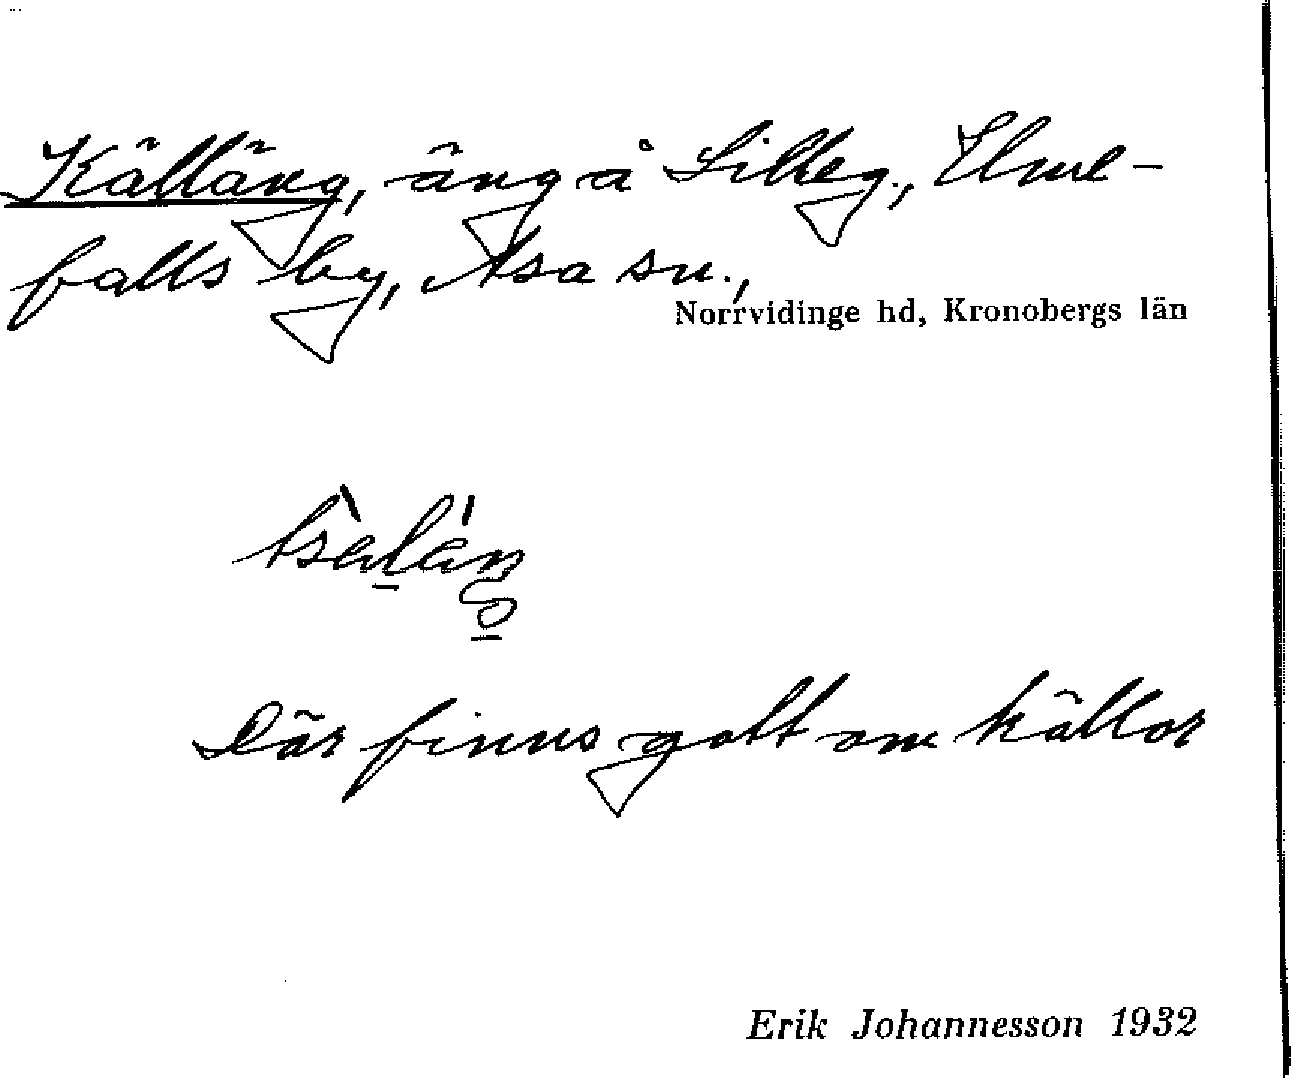 Källäng, äng å Lilleg., Elme-
falls by, Asa sn.,
Norrvidinge hd, Kronobergs län
Där finns gott om källor
Erik Johannesson 1932